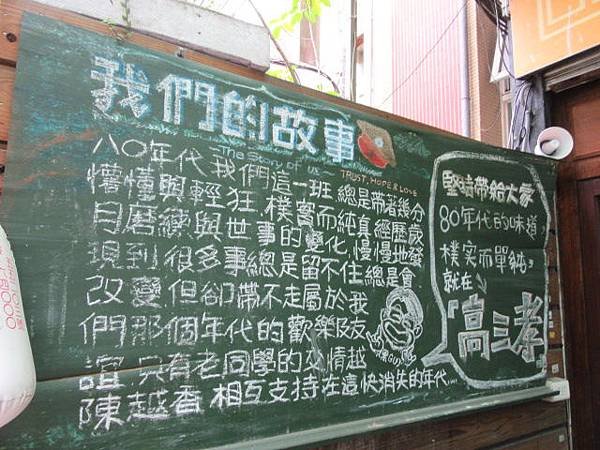 我們的故事
~The Story of us~
TRUST, HOPE & LOVE
八〇年代我們這一班,總是帶著幾分
懵懂與輕狂.樸實而純真,經歷歲
月磨練與世事的變化,慢慢地發
現到很多事總是留不住總是會
改變,但卻帶不走屬於我
們那個年代的歡樂及友
誼,只有老同學的交情越
陳越香,相互支持在這快消失的年代....
堅持帶給大家
80年代的味道,
樸實而單純,
就在
「高三孝」